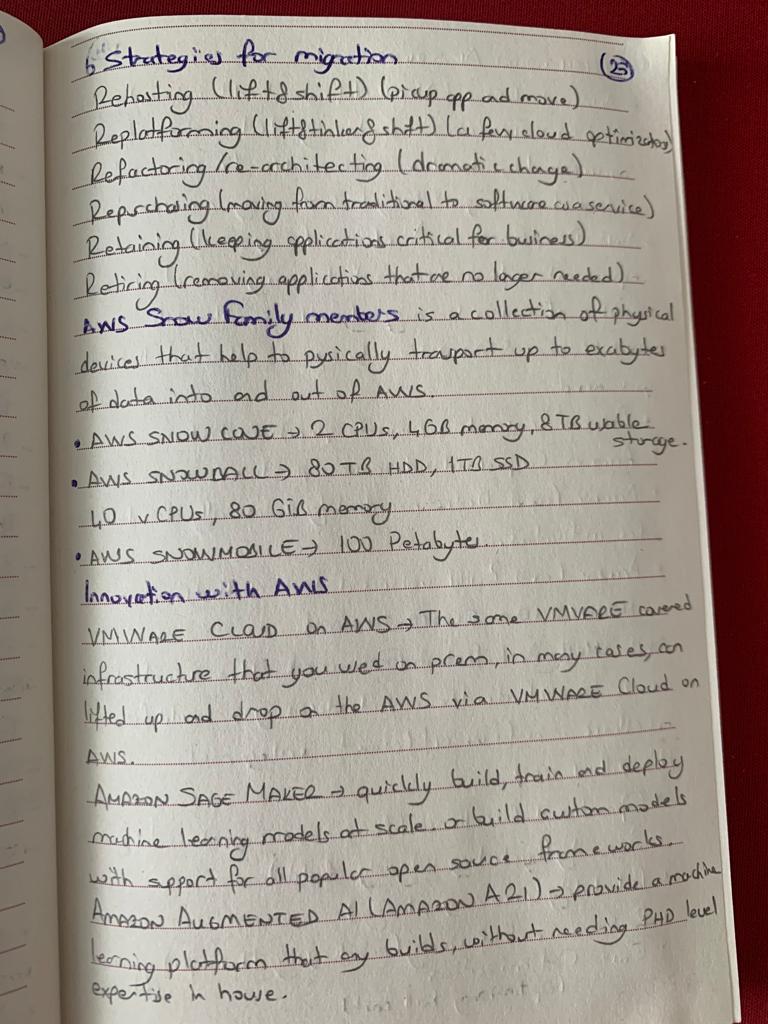 6 Strategies for migration (25)
Rehosting (lift&shift) (picup app ad move)
Replatforming (lift&tinker&shift) (a few cloud optimization)
Refactoring /re-architecting (dramatic change)
Repurchasing (moving from traditional to software as a service)
Retaining (keeping applications critical for business)
Retiring (removing applications that are no longer needed)
AWS Snow Family members is a collection of physical
devices that help to pysically transport up to exabytes
of data into and out of AWS.
• AWS SNOW CONE → 2 CPUs, 4GB memory, 8TB usable
storage.
• AWS SNOWBALL → 80TB HDD, 1TB SSD
40 vCPUs, 80 GiB memory
• AWS SNOWMOBILE → 100 Petabyte
Innovation with AWS
VMWARE CLOUD on AWS → The same VMVARE
infrastructure that you used on prem, in many cases, can
lifted up and drop on the AWS via VMWARE Cloud on
AWS.
AMAZON SAGE MAKER → quickly build, train and deploy
machine learning models at scale. or build custom models
with support for all popular open source frameworks.
AMAZON AUGMENTED AI (AMAZON A2I) → provide a machine
learning platform that any builds, without needing PHD level
expertise in house.